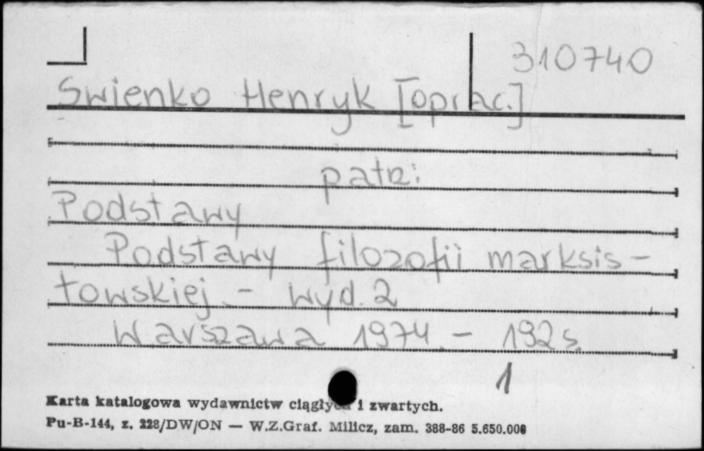 310740
Swienko Henryk [oprac.]
patrz:
Podstawy
Podstawy filozofii marksis-
towskiej.- Wyd. 2
Warszawa 1974.- 192s.
1
Karta katalogowa wydawnictw ciągłych i zwartych.
Pu-B-144, z. 228/DW/ON — W.Z.Graf. Milicz, zam. 388-86 5.650.000